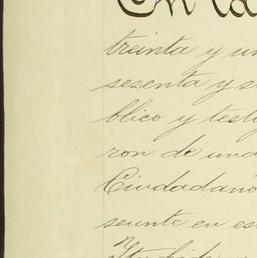 En la
treinta y un
sesenta y s
blico y testi
ron de una
Ciudadano
sente en es